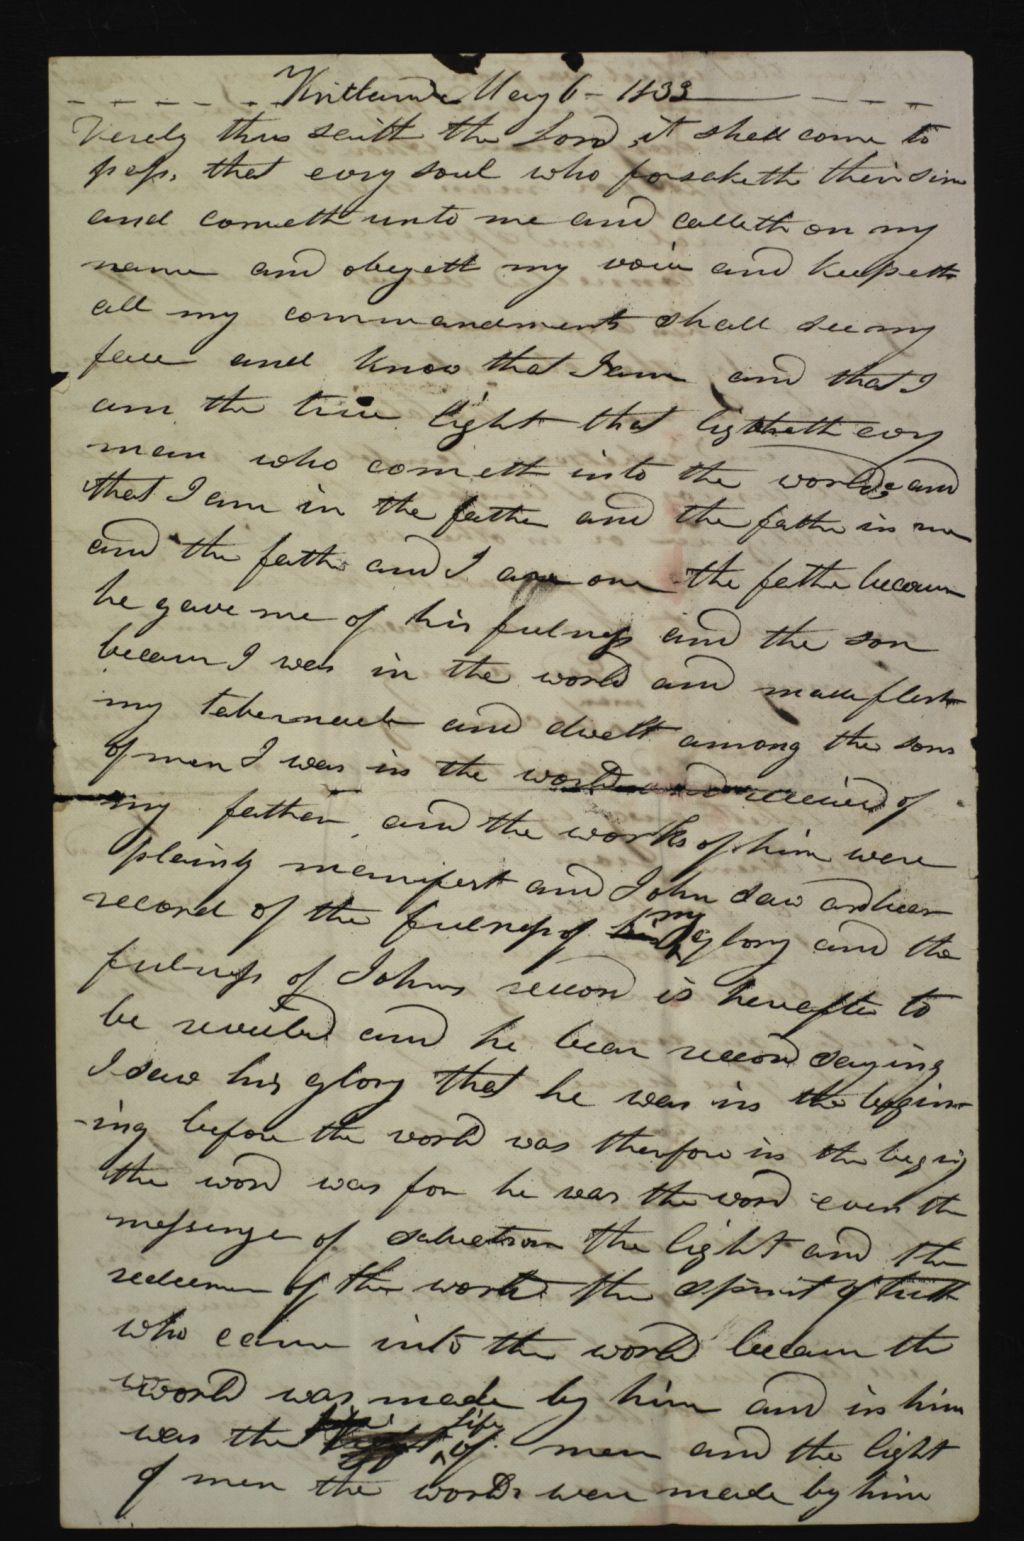 Kirtland May 6 - 1833
Verely thus saith the Lord, it shall come to
pass, that evry soul who forsaketh their sins
and cometh unto me and calleth on my
name and obeyeth my voice and keepeth
all my commandments shall see my
face and know that I am and that I
am the true light that ligtheth evry
man who cometh into the world and
that I am in the father and the father in me
and the father and I are one the father because
he gave me of his fulness and the son
because I was in the world and made flesh
my tabernacle and dwelt among the sons
of men I was in the world and received of
my father, and the works of him were
plainly manifest and John saw and bear
record of the fulness of my glory and the
fulness of Johns record is hereafter to
be reveiled and he bear record saying
I saw his glory that he was in the beginn-
-ing before the world was therfore in the beginig
the word was for he was the word even the
messenger of salvation the light and the
redeemer of the world the spirit of truth
who came into the world because the
world was made by him and in him
was the life of men and the light
of men the worlds were made by him